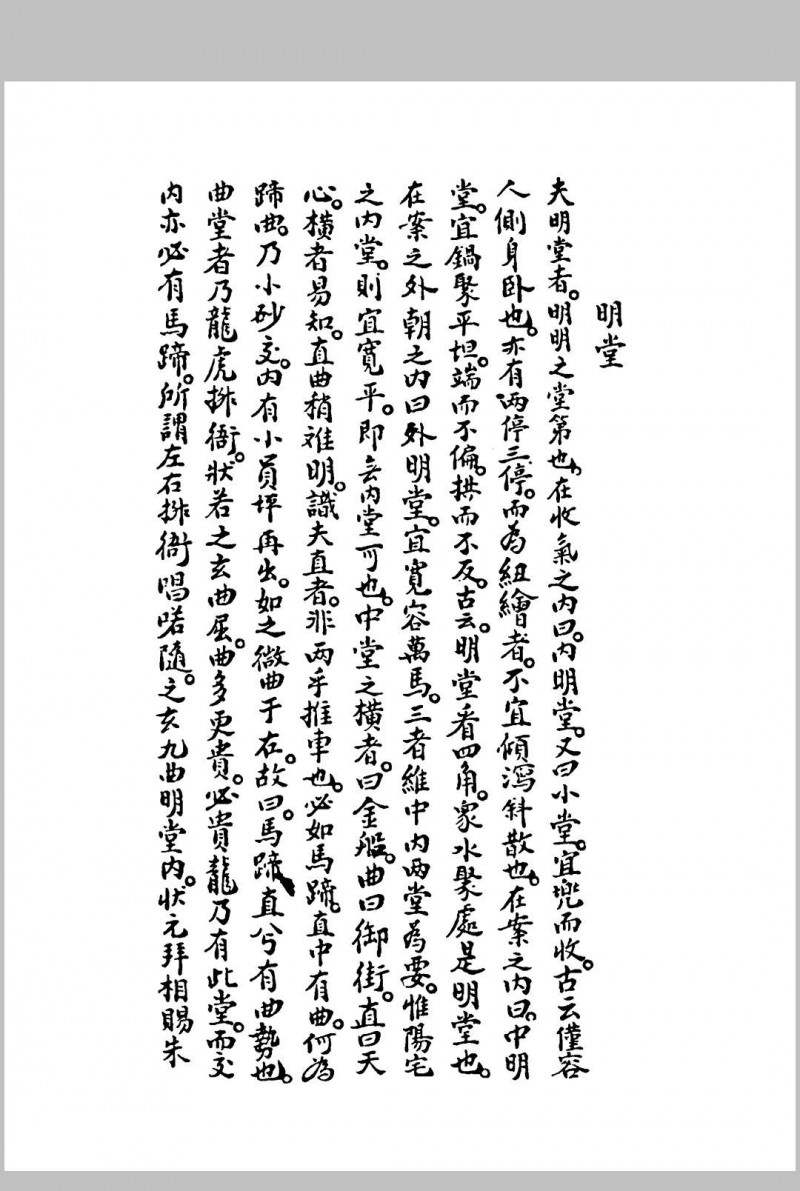 明堂
夫明堂者。明明之堂第也。在收氣之内曰。内明堂。又曰小堂。宜兜而收。古云僅容
人側身卧也。亦有两停三停。而為紐繪者。不宜傾瀉斜散也。在案之内曰。中明
堂。宜鍋聚平坦。端而不偏。拱而不反。古云。明堂看四角。衆水聚處是明堂也。
在案之外朝之内曰外明堂。宜寬容萬馬。三者維中内两堂為要。惟陽宅
之内堂。則宜寬平。即無内堂可也。中堂之横者。曰金船。曲曰御街。直曰天
心。横者易知。直曲稍难明。識夫直者。非两手推車也。必如馬蹄。直中有曲。何為
蹄曲。乃小砂交。内有小員坪再出。如之微曲于在。故曰。馬蹄直兮有曲勢也。
曲堂者乃龍虎排衙。狀若之玄曲屈。曲多更貴。必貴龍乃有此堂。而交
内亦必有馬蹄。所謂左右排衙唱喏隨。之玄九曲明堂内。状元拜相賜朱